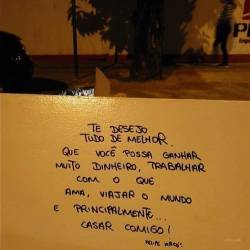 TE DESEJO
TUDO DE MELHOR.
QUE VOCÊ POSSA GANHAR
MUITO DINHEIRO, TRABALHAR
COM O QUE
AMA, VIAJAR O MUNDO
E PRINCIPALMENTE...
CASAR COMIGO!